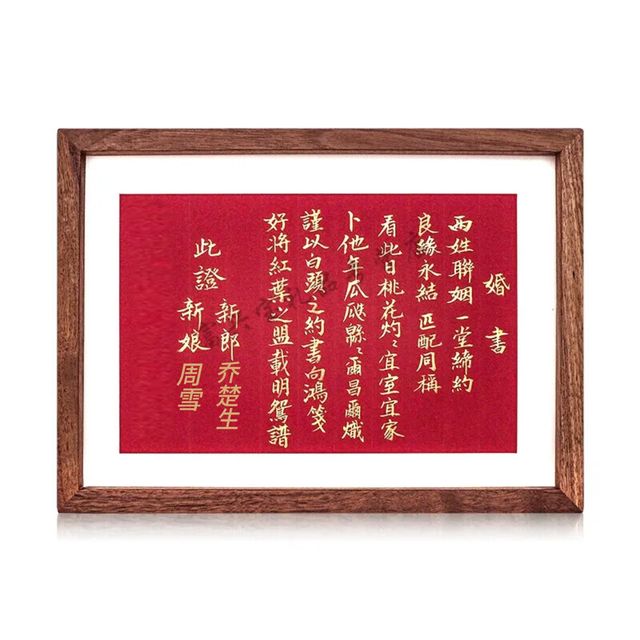 婚書
兩姓聯姻一堂締約
良緣永結匹配同稱
看此日桃花灼〻宜室宜家
卜他年瓜瓞緜〻爾昌爾熾
謹以白頭之約書向鴻箋
好將紅葉之盟載明鴛譜
此證
新郎乔楚生
新娘周雪